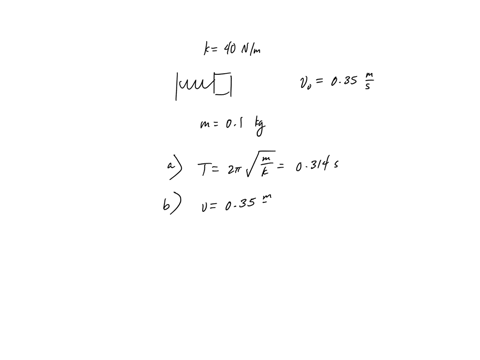 k = 40 N/m
v₀ = 0.35 m/s
m = 0.1 kg
a) T = 2π √(m/k) = 0.314 s
b) v = 0.35 m